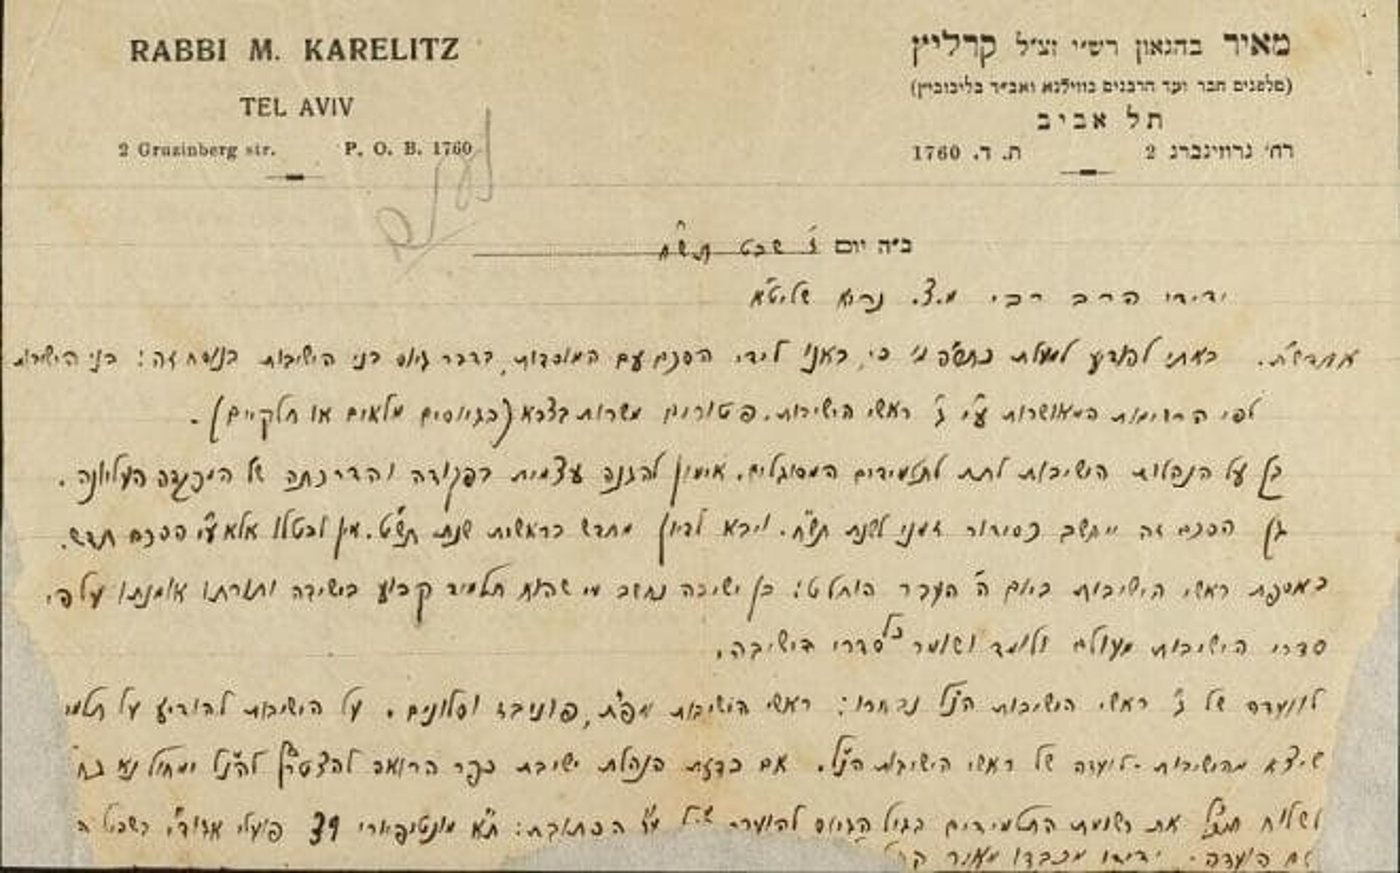 RABBI M. KARELITZ
TEL AVIV
2 Gruzinberg str. P. O. B. 1760
מאיר בהגאון רש״י זצ״ל קרליץ
(מלפנים חבר ועד הרבנים בווילנא ואב״ד בליכוביץ)
תל אביב
רח׳ גרוזינברג 2 ת. ד. 1760
ב״ה יום ז׳ שבט תש״ח
ידידי הרב רבי מ.צ. נריה שליט״א
אחדש״ת. באתי להודיע למעלת כת״ה כי, באנו לידי הסכם עם המוסדות, בדבר גיוס בני הישיבות בנוסח זה: בני הישיבות
לפי הרשימות המאושרות ע״י ג׳ ראשי הישיבות. פטורים משרות בצבא (בגיוסים מלאים או חלקיים).
על הנהלות הישיבות לתת לתלמידים המסוגלים. אימון להגנה עצמית בפקודה והדרכתה של המפקדה העליונה.
הסכם זה ייחשב כסידור זמני לשנת תש״ח. ויבא לדיון מחדש בראשית שנת תש״ט. אין לבטלו אלא ע״י הסכם חדש.
באספת ראשי הישיבות ביום ה׳ העבר הוחלט: בן ישיבה נחשב מי שהוא תלמיד קבוע בישיבה ותורתו אומנתו על פי
סדרי הישיבות מעולם ולומד ושומר כל סדרי הישיבה.
לוועדה של ג׳ ראשי הישיבות הנ״ל נבחרו: ראשי הישיבות פ״ת, פוניבז וסלונים. על הישיבות להודיע על תלמיד
שיצא מהישיבות לועדה של ראשי הישיבות הנ״ל. אם בדעת הנהלת ישיבת כפר הרואה להצטרף להנ״ל ימחול נא
לשלוח את רשומת התלמידים בגיל הגיוס להועדה הנ״ל הכתובת: ת״א מונטיפיורי 39 פועלי אגוד״י בשביל
הועדה. ידידו מכבדו מאיר